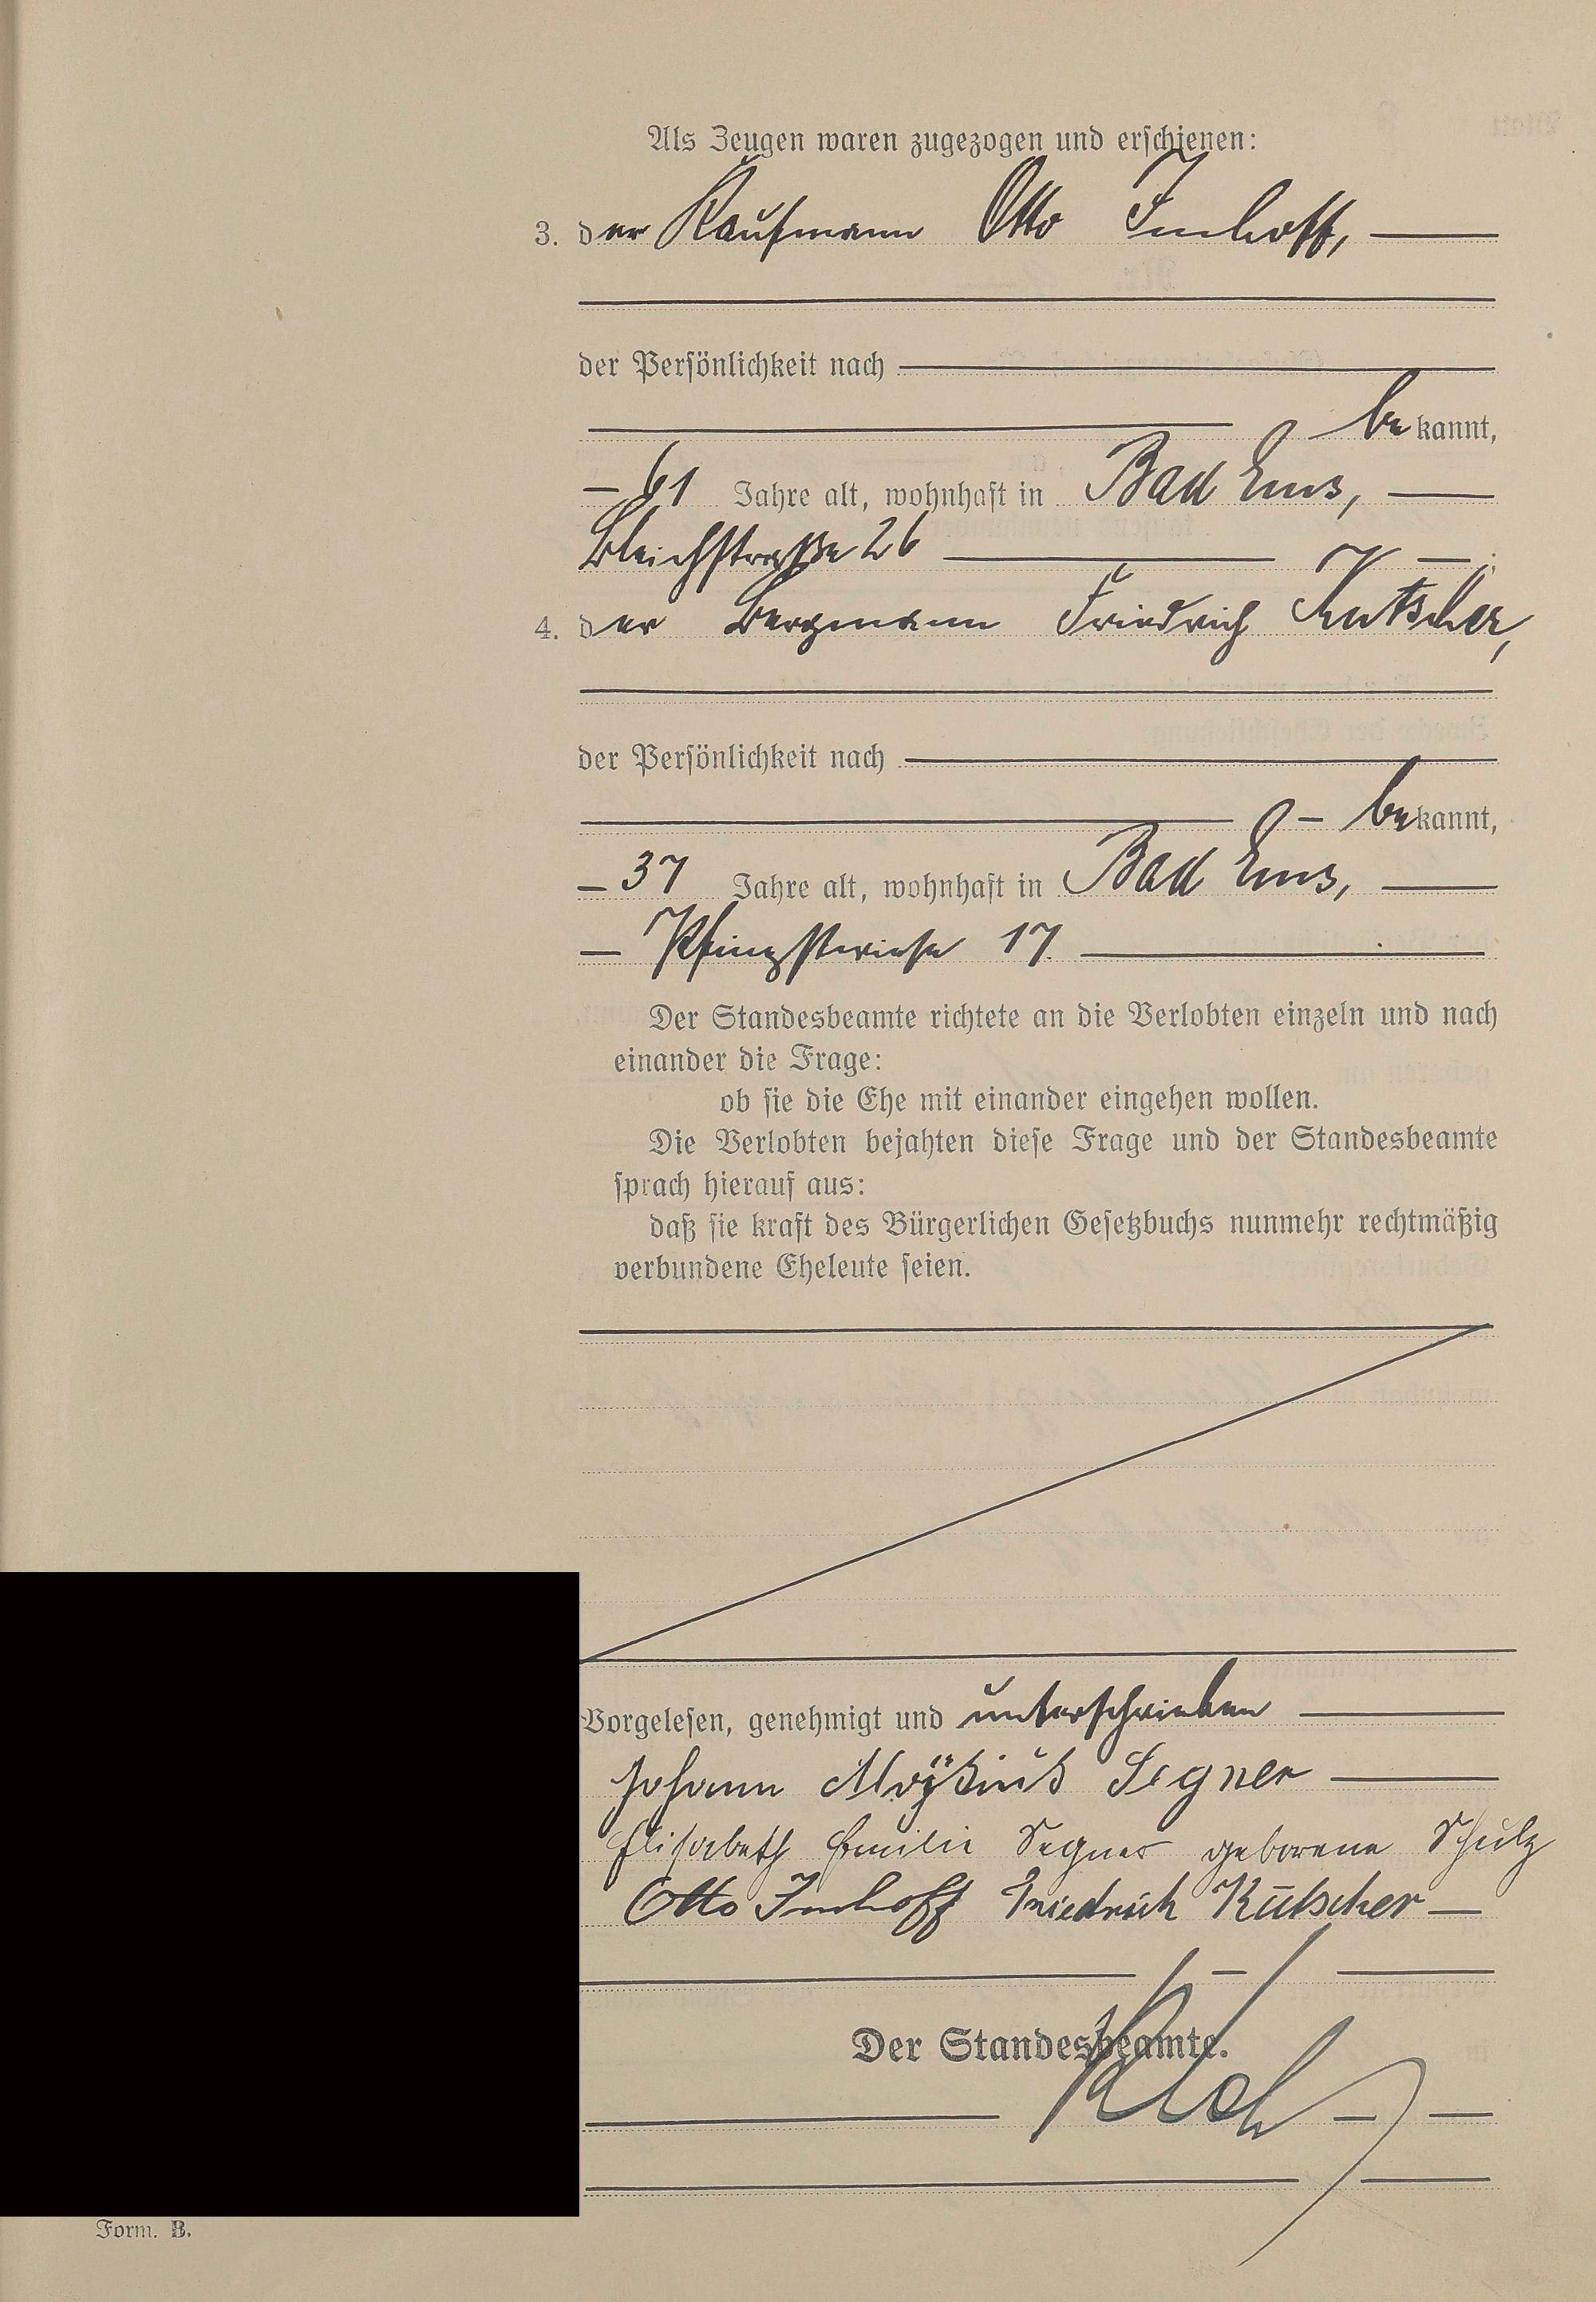 Als Zeugen waren zugezogen und erschienen:
3. der Kaufmann Otto Imhoff,
der Persönlichkeit nach
bekannt,
61 Jahre alt, wohnhaft in Bad Ems,
Bleichstraße 26 ;
4. der Bergmann Friedrich Kutscher,
der Persönlichkeit nach
bekannt,
37 Jahre alt, wohnhaft in Bad Ems,
Pfingstwiese 17.
Der Standesbeamte richtete an die Verlobten einzeln und nach
einander die Frage:
ob sie die Ehe mit einander eingehen wollen.
Die Verlobten bejahten diese Frage und der Standesbeamte
sprach hierauf aus:
daß sie kraft des Bürgerlichen Gesetzbuchs nunmehr rechtmäßig
verbundene Eheleute seien.
Vorgelesen, genehmigt und unterschrieben
Johann Aloÿsius Segner
Elisabeth Emilie Segner geborene Schulz
Otto Imhoff Friedrich Kutscher
Der Standesbeamte.
Form. B.